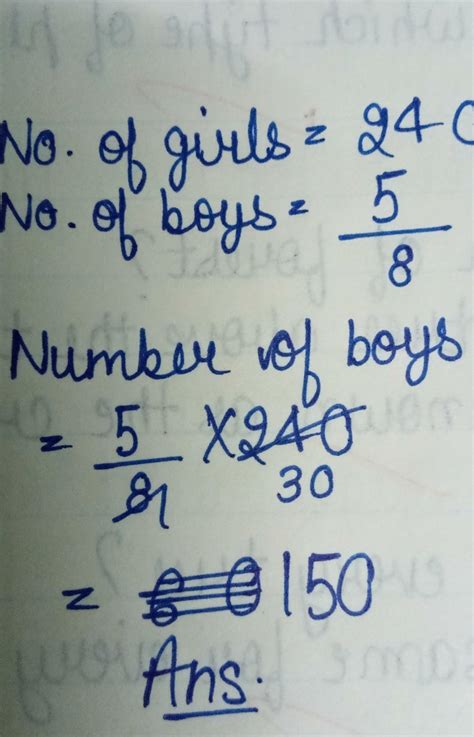 No. of girls = 240
No. of boys = 5
8
Number of boys
= 5 × 240
81 30
= 150
Ans.